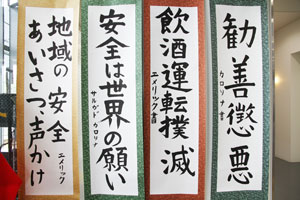 勧善懲悪
カロリナ書
飲酒運転撲滅
エメリック書
安全は世界の願い
サルガドカロリナ
地域の安全
あいさつ、声かけ
エメリック